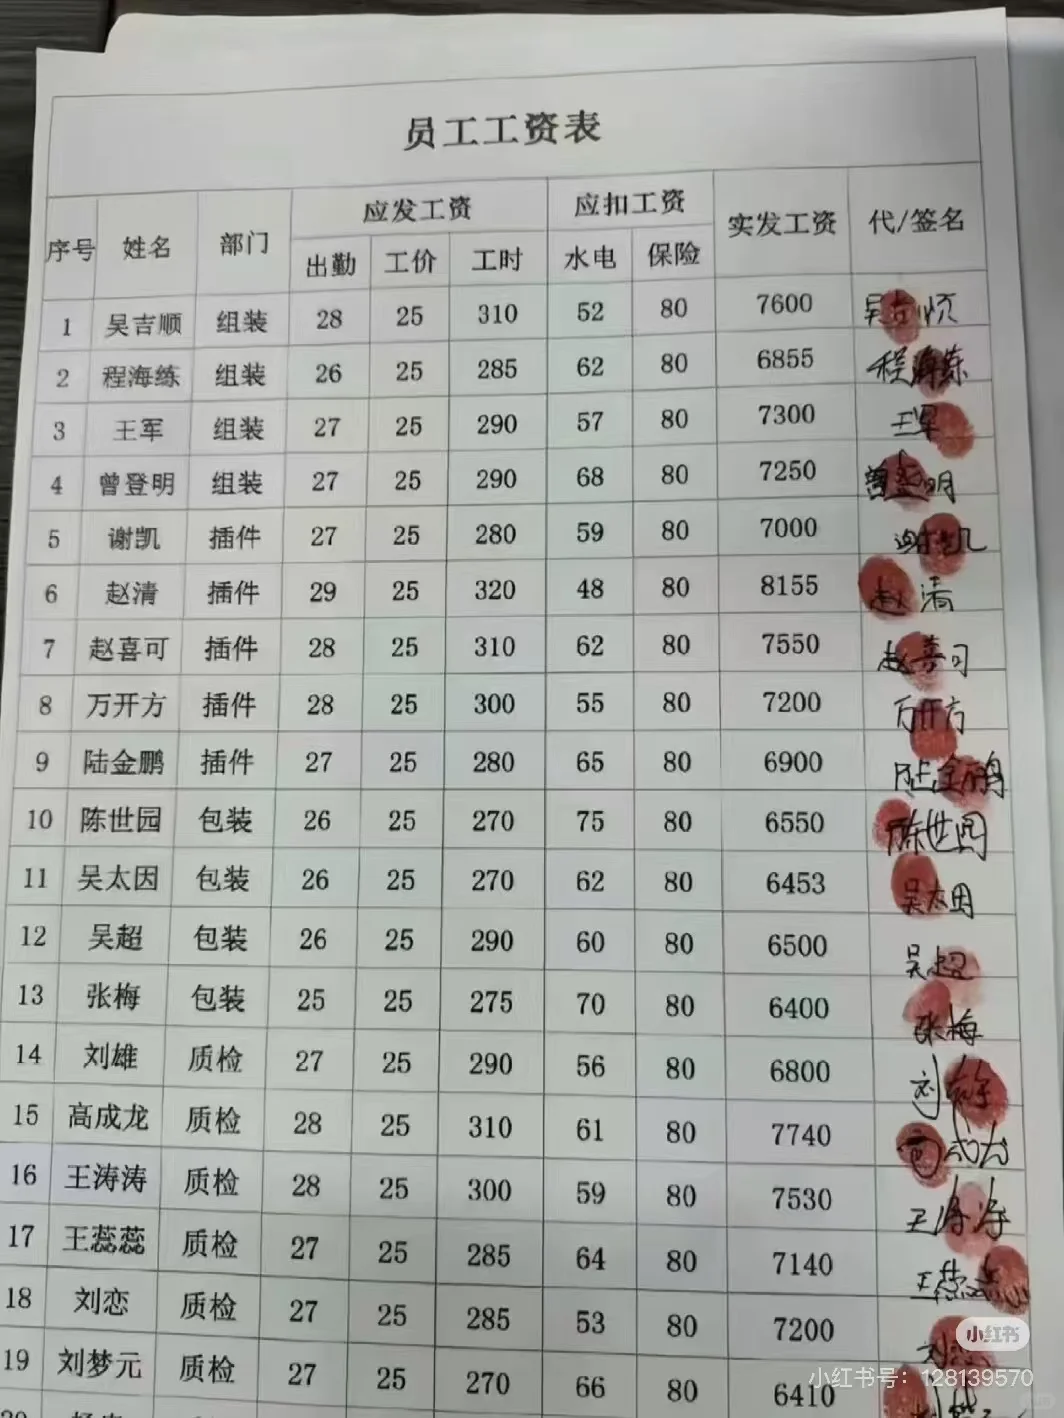 员工工资表
序号 姓名 部门 应发工资 应扣工资 实发工资 代/签名
出勤 工价 工时 水电 保险
1 吴吉顺 组装 28 25 310 52 80 7600 吴吉顺
2 程海练 组装 26 25 285 62 80 6855 程海练
3 王军 组装 27 25 290 57 80 7300 王军
4 曾登明 组装 27 25 290 68 80 7250 曾登明
5 谢凯 插件 27 25 280 59 80 7000 谢凯
6 赵清 插件 29 25 320 48 80 8155 赵清
7 赵喜可 插件 28 25 310 62 80 7550 赵喜可
8 万开方 插件 28 25 300 55 80 7200 万开方
9 陆金鹏 插件 27 25 280 65 80 6900 陆金鹏
10 陈世园 包装 26 25 270 75 80 6550 陈世园
11 吴太因 包装 26 25 270 62 80 6453 吴太因
12 吴超 包装 26 25 290 60 80 6500 吴超
13 张梅 包装 25 25 275 70 80 6400 张梅
14 刘雄 质检 27 25 290 56 80 6800 刘雄
15 高成龙 质检 28 25 310 61 80 7740 高成龙
16 王涛涛 质检 28 25 300 59 80 7530 王涛涛
17 王蕊蕊 质检 27 25 285 64 80 7140 王蕊蕊
18 刘恋 质检 27 25 285 53 80 7200 刘恋
19 刘梦元 质检 27 25 270 66 80 6410
小红书
小红书号：128139570